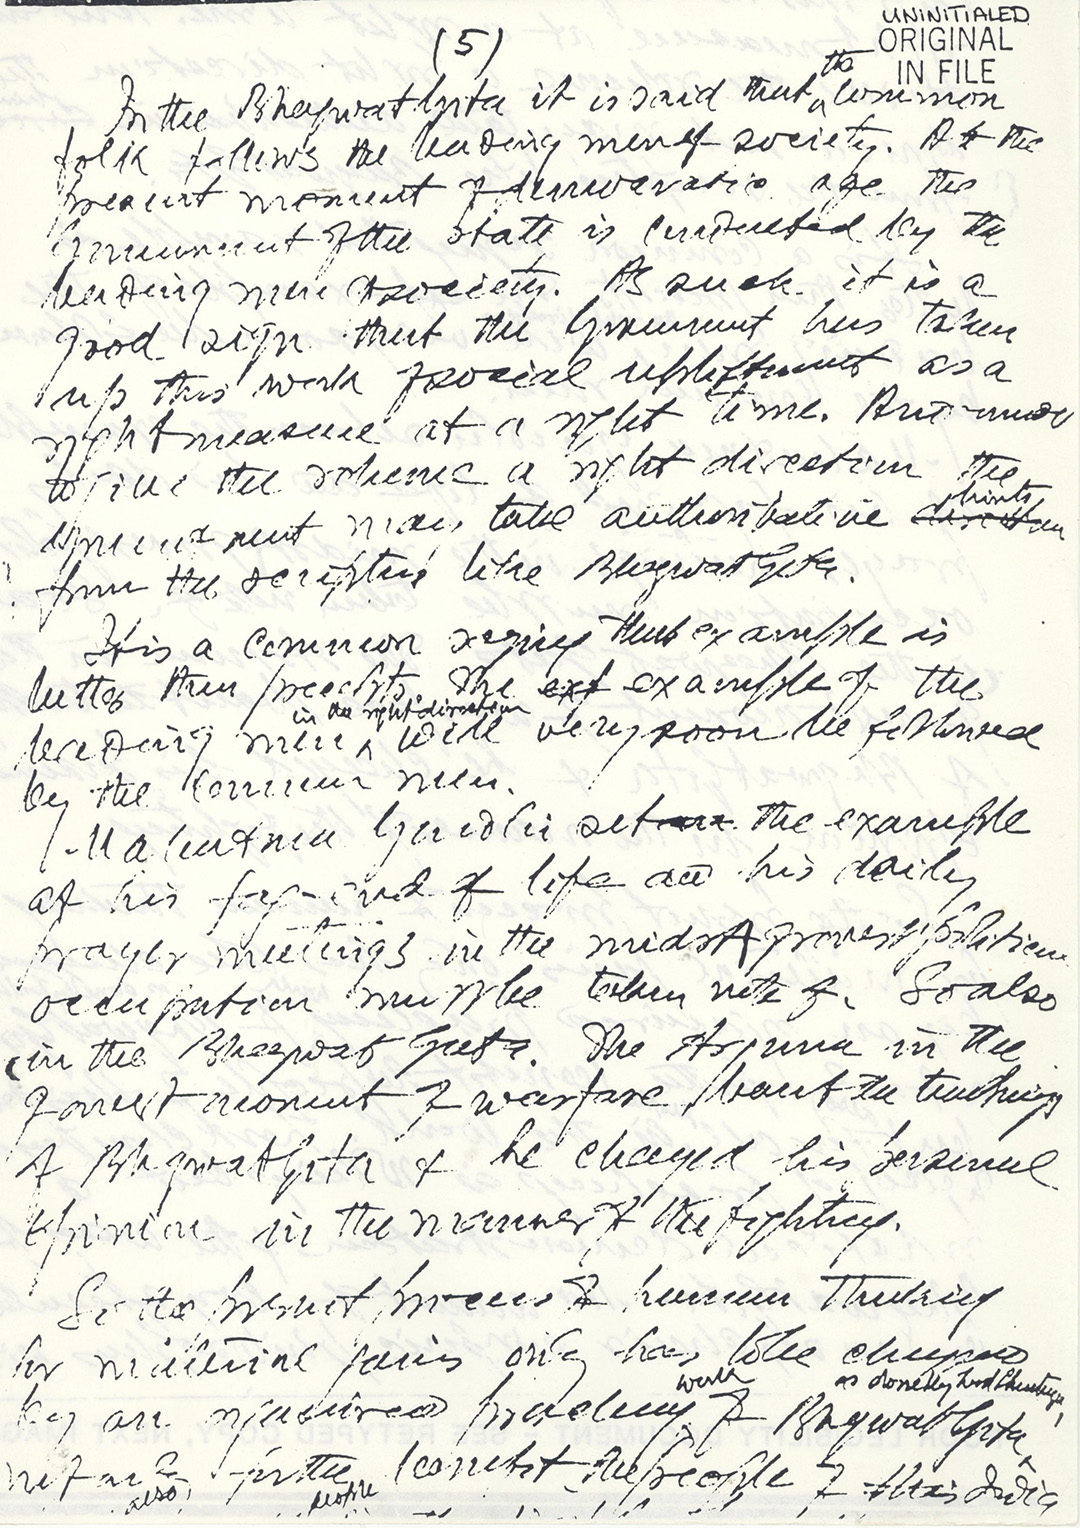 UNINITIALED
ORIGINAL
IN FILE
(5)
In the Bhagwat Gita it is said that the common
folk follows the leading men of society. At the
present moment of democratic age the
Government of the state is conducted by the
leading men of society. As such it is a
good sign that the Government has taken
up this work of social upliftment as a
right measure at a right time. And now
to give the scheme a right direction the
Government may take authoritative hints
from the scripture like Bhagwat Gita.
It is a common saying that example is
better than precepts. The example of the
leading men in the right direction will very soon be followed
by the common men.
Mahatma Gandhi set the example
at his fag-end of life and his daily
prayer meetings in the midst of gravest political
occupation must be taken note of. So also
in the Bhagwat Geeta. The Arjuna in the
gravest moment of warfare learnt the teachings
of Bhagwat Gita & he changed his personal
opinion in the manner of the fighting.
So the present process of human thinking
for material gains only has to be changed
by an organised work of Bhagwat Gita as done by Lord Chaitanya,
not only for the benefit the people of this India
also people